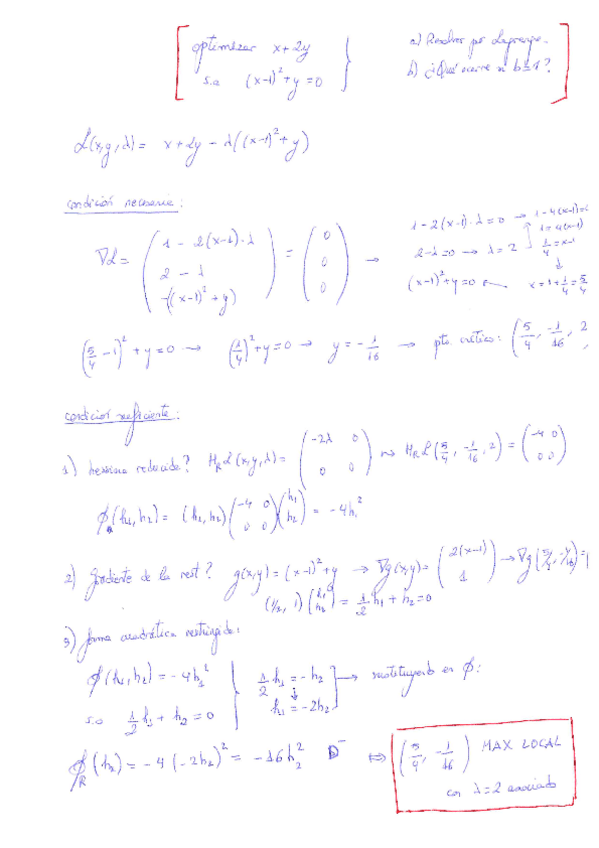 optimizar x+2y
s.a (x-1)²+y=0
a) Resolver por Lagrange.
b) ¿Qué ocurre si b=1?
L(x,y,λ)= x+2y-λ((x-1)²+y)
condición necesaria:
∇L = (1-2(x-1)·λ, 2-λ, -((x-1)²+y)) = (0, 0, 0) →
1-2(x-1)·λ=0 → 1-4(x-1)=0
2-λ=0 → λ=2
1=4(x-1)
1/4=x-1
(x-1)²+y=0 ← x=1+1/4=5/4
(5/4-1)²+y=0 → (1/4)²+y=0 → y=-1/16 → pto. crítico: (5/4, -1/16, 2
condición suficiente:
1) hessiana reducida? H_R L(x,y,λ)= (-2λ 0; 0 0) ⇝ H_R L(5/4, -1/16, 2) = (-4 0; 0 0)
ϕ(h₁,h₂) = (h₁,h₂)(-4 0; 0 0)(h₁; h₂) = -4h₁²
2) gradiente de la rest? g(x,y)=(x-1)²+y → ∇g(x,y)= (2(x-1); 1) → ∇g(5/4, -1/16)=
(1/2, 1)(h₁; h₂) = 1/2 h₁+h₂=0
3) forma cuadrática restringida:
ϕ(h₁,h₂)=-4h₁²
s.a 1/2 h₁+h₂=0
1/2 h₁=-h₂
↓
h₁=-2h₂
→ sustituyendo en ϕ:
ϕ_R(h₂)=-4(-2h₂)²=-16h₂² D⁻ ⇔
(5/4, -1/16) MAX LOCAL
con λ=2 asociado